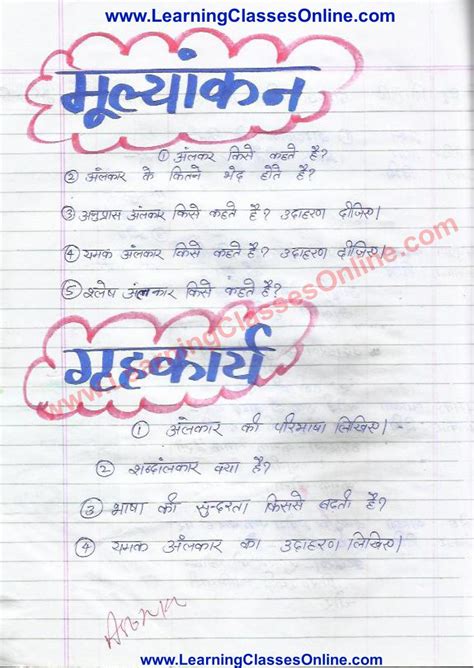 www.LearningClassesOnline.com
मूल्यांकन
① अंलकार किसे कहते है?
② अंलकार के कितने भेद होते है?
③ अनुप्रास अंलकार किसे कहते है? उदाहरण दीजिए।
④ यमक अंलकार किसे कहते है? उदाहरण दीजिए।
⑤ श्लेष अंलकार किसे कहते है?
www.LearningClassesOnline.com
गृहकार्य
① अंलकार की परिभाषा लिखिए।
② शब्दांलकार क्या है?
③ भाषा की सुन्दरता किससे बढती है?
④ यमक अंलकार का उदाहरण लिखिए।
www.LearningClassesOnline.com